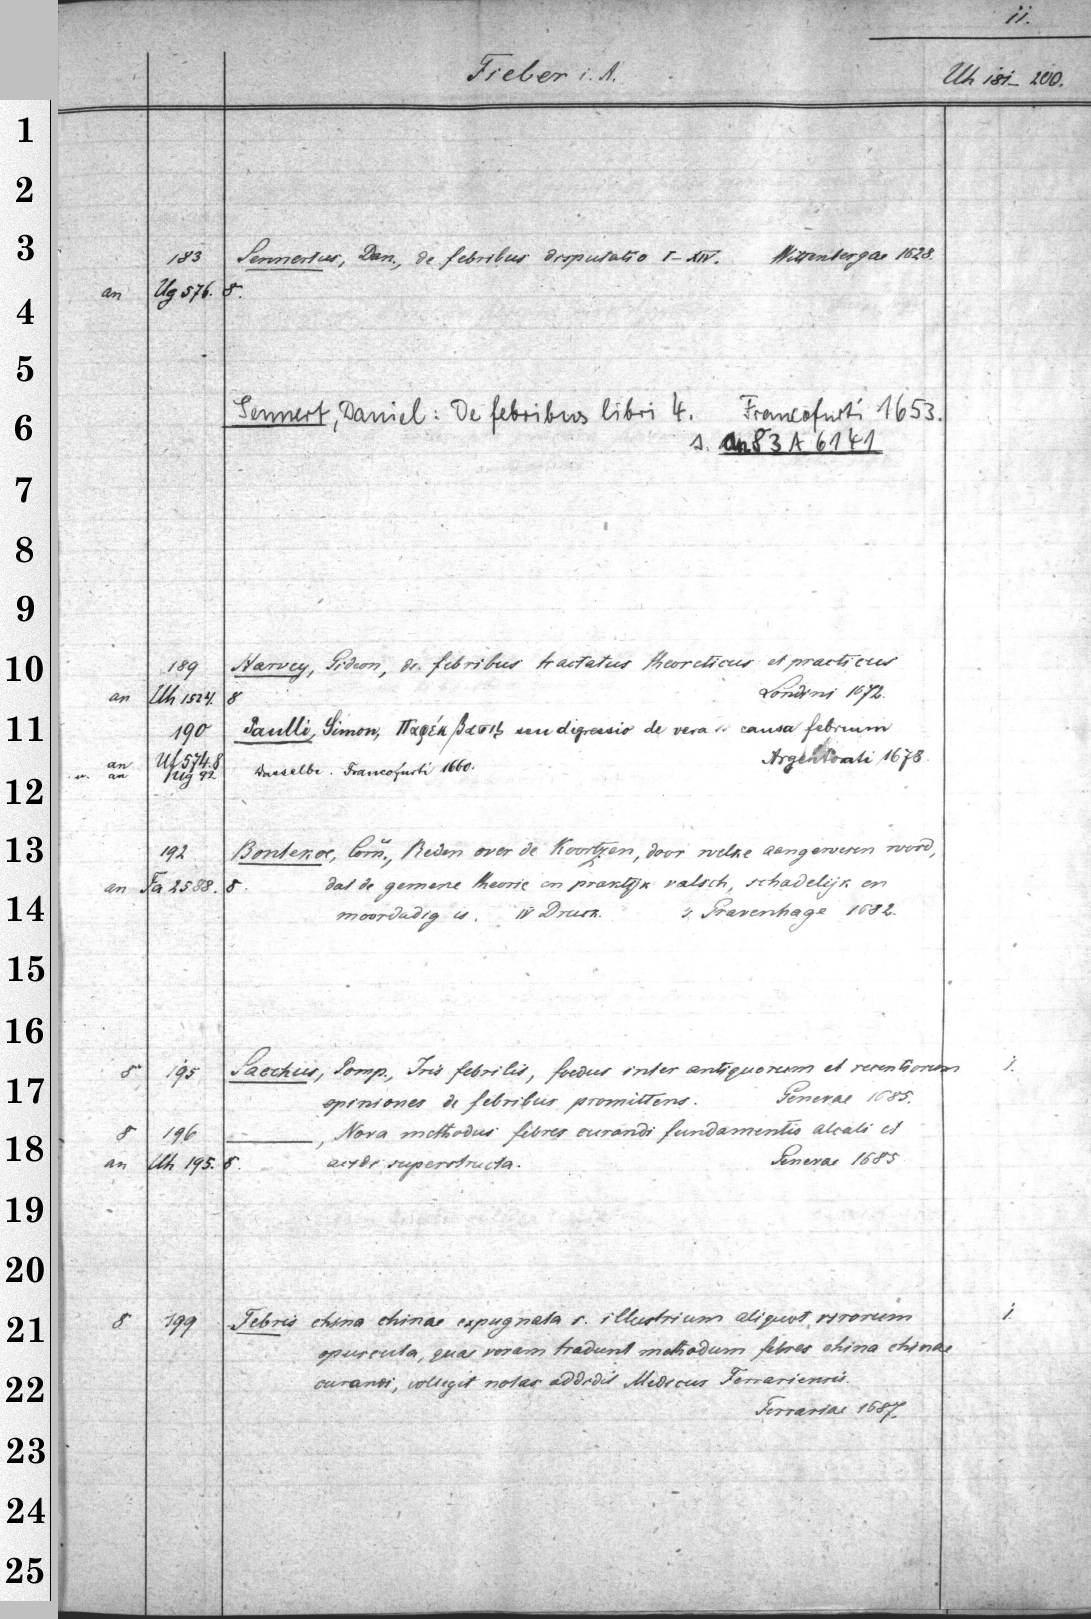 ii.
Fieber i. A.
Uh 181-200.
183 Sennertus, Dan., de febribus disputatio I-XIV. Wittenbergae 1628.
an Ug 576. 8.
Sennert, Daniel: De febribus libri 4. Francofurti 1653.
s. an 83 A 6141
189 Harvey, Gideon, de febribus tractatus theoreticus et practicus
an Uh 1524. 8 Londini 1672.
190 Paulli, Simon, Παρέκβασις seu digressio de vera causa febrium
an Uf 574.8 Argentorati 1678.
u. an Ug 92 Dasselbe. Francofurti 1660.
192 Bontekoe, Corn., Reden over de Koortzen, door welke aangewesen word,
an Fa 2588. 8. dat de gemene theorie en praktijk valsch, schadelijk en
moordadig is. IV Druck. 's Gravenhage 1682.
8 195 Sacchus, Pomp., Iris febrilis, foedus inter antiquorum et recentiorum 1.
opiniones de febribus promittens. Genevae 1685.
8 196 ———, Nova methodus febres curandi fundamentis alcali et
an Uh 195. 8. acidi superstructa. Genevae 1685
8 199 Febris china chinae expugnata s. illustrium aliquot virorum 1.
opuscula, quae veram tradunt methodum febres china chinae
curandi, collegit notas addidit Medicus Ferrariensis.
Ferrariae 1687
1
2
3
4
5
6
7
8
9
10
11
12
13
14
15
16
17
18
19
20
21
22
23
24
25